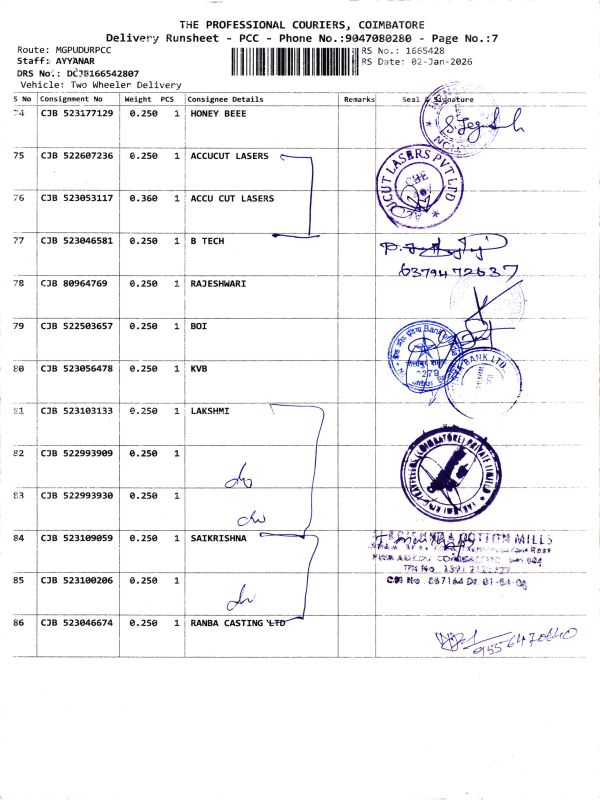 THE PROFESSIONAL COURIERS, COIMBATORE
Delivery Runsheet - PCC - Phone No.:9047080280 - Page No.:7
Route: MGPUDURPCC
RS No.: 1665428
Staff: AYYANAR
RS Date: 02-Jan-2026
DRS No.: DCJB166542807
Vehicle: Two Wheeler Delivery
S No Consignment No Weight PCS Consignee Details Remarks Seal & Signature
74 CJB 523177129 0.250 1 HONEY BEEE
75 CJB 522607236 0.250 1 ACCUCUT LASERS
ACCUCUT LASERS PVT LTD
CBE
76 CJB 523053117 0.360 1 ACCU CUT LASERS
77 CJB 523046581 0.250 1 B TECH
6379472637
78 CJB 80964769 0.250 1 RAJESHWARI
79 CJB 522503657 0.250 1 BOI
80 CJB 523056478 0.250 1 KVB
BANK LTD.
81 CJB 523103133 0.250 1 LAKSHMI
(COIMBATORE) PRIVATE LIMITED
82 CJB 522993909 0.250 1
83 CJB 522993930 0.250 1
84 CJB 523109059 0.250 1 SAIKRISHNA
COTTON MILLS
85 CJB 523100206 0.250 1
86 CJB 523046674 0.250 1 RANBA CASTING LTD
9556470640